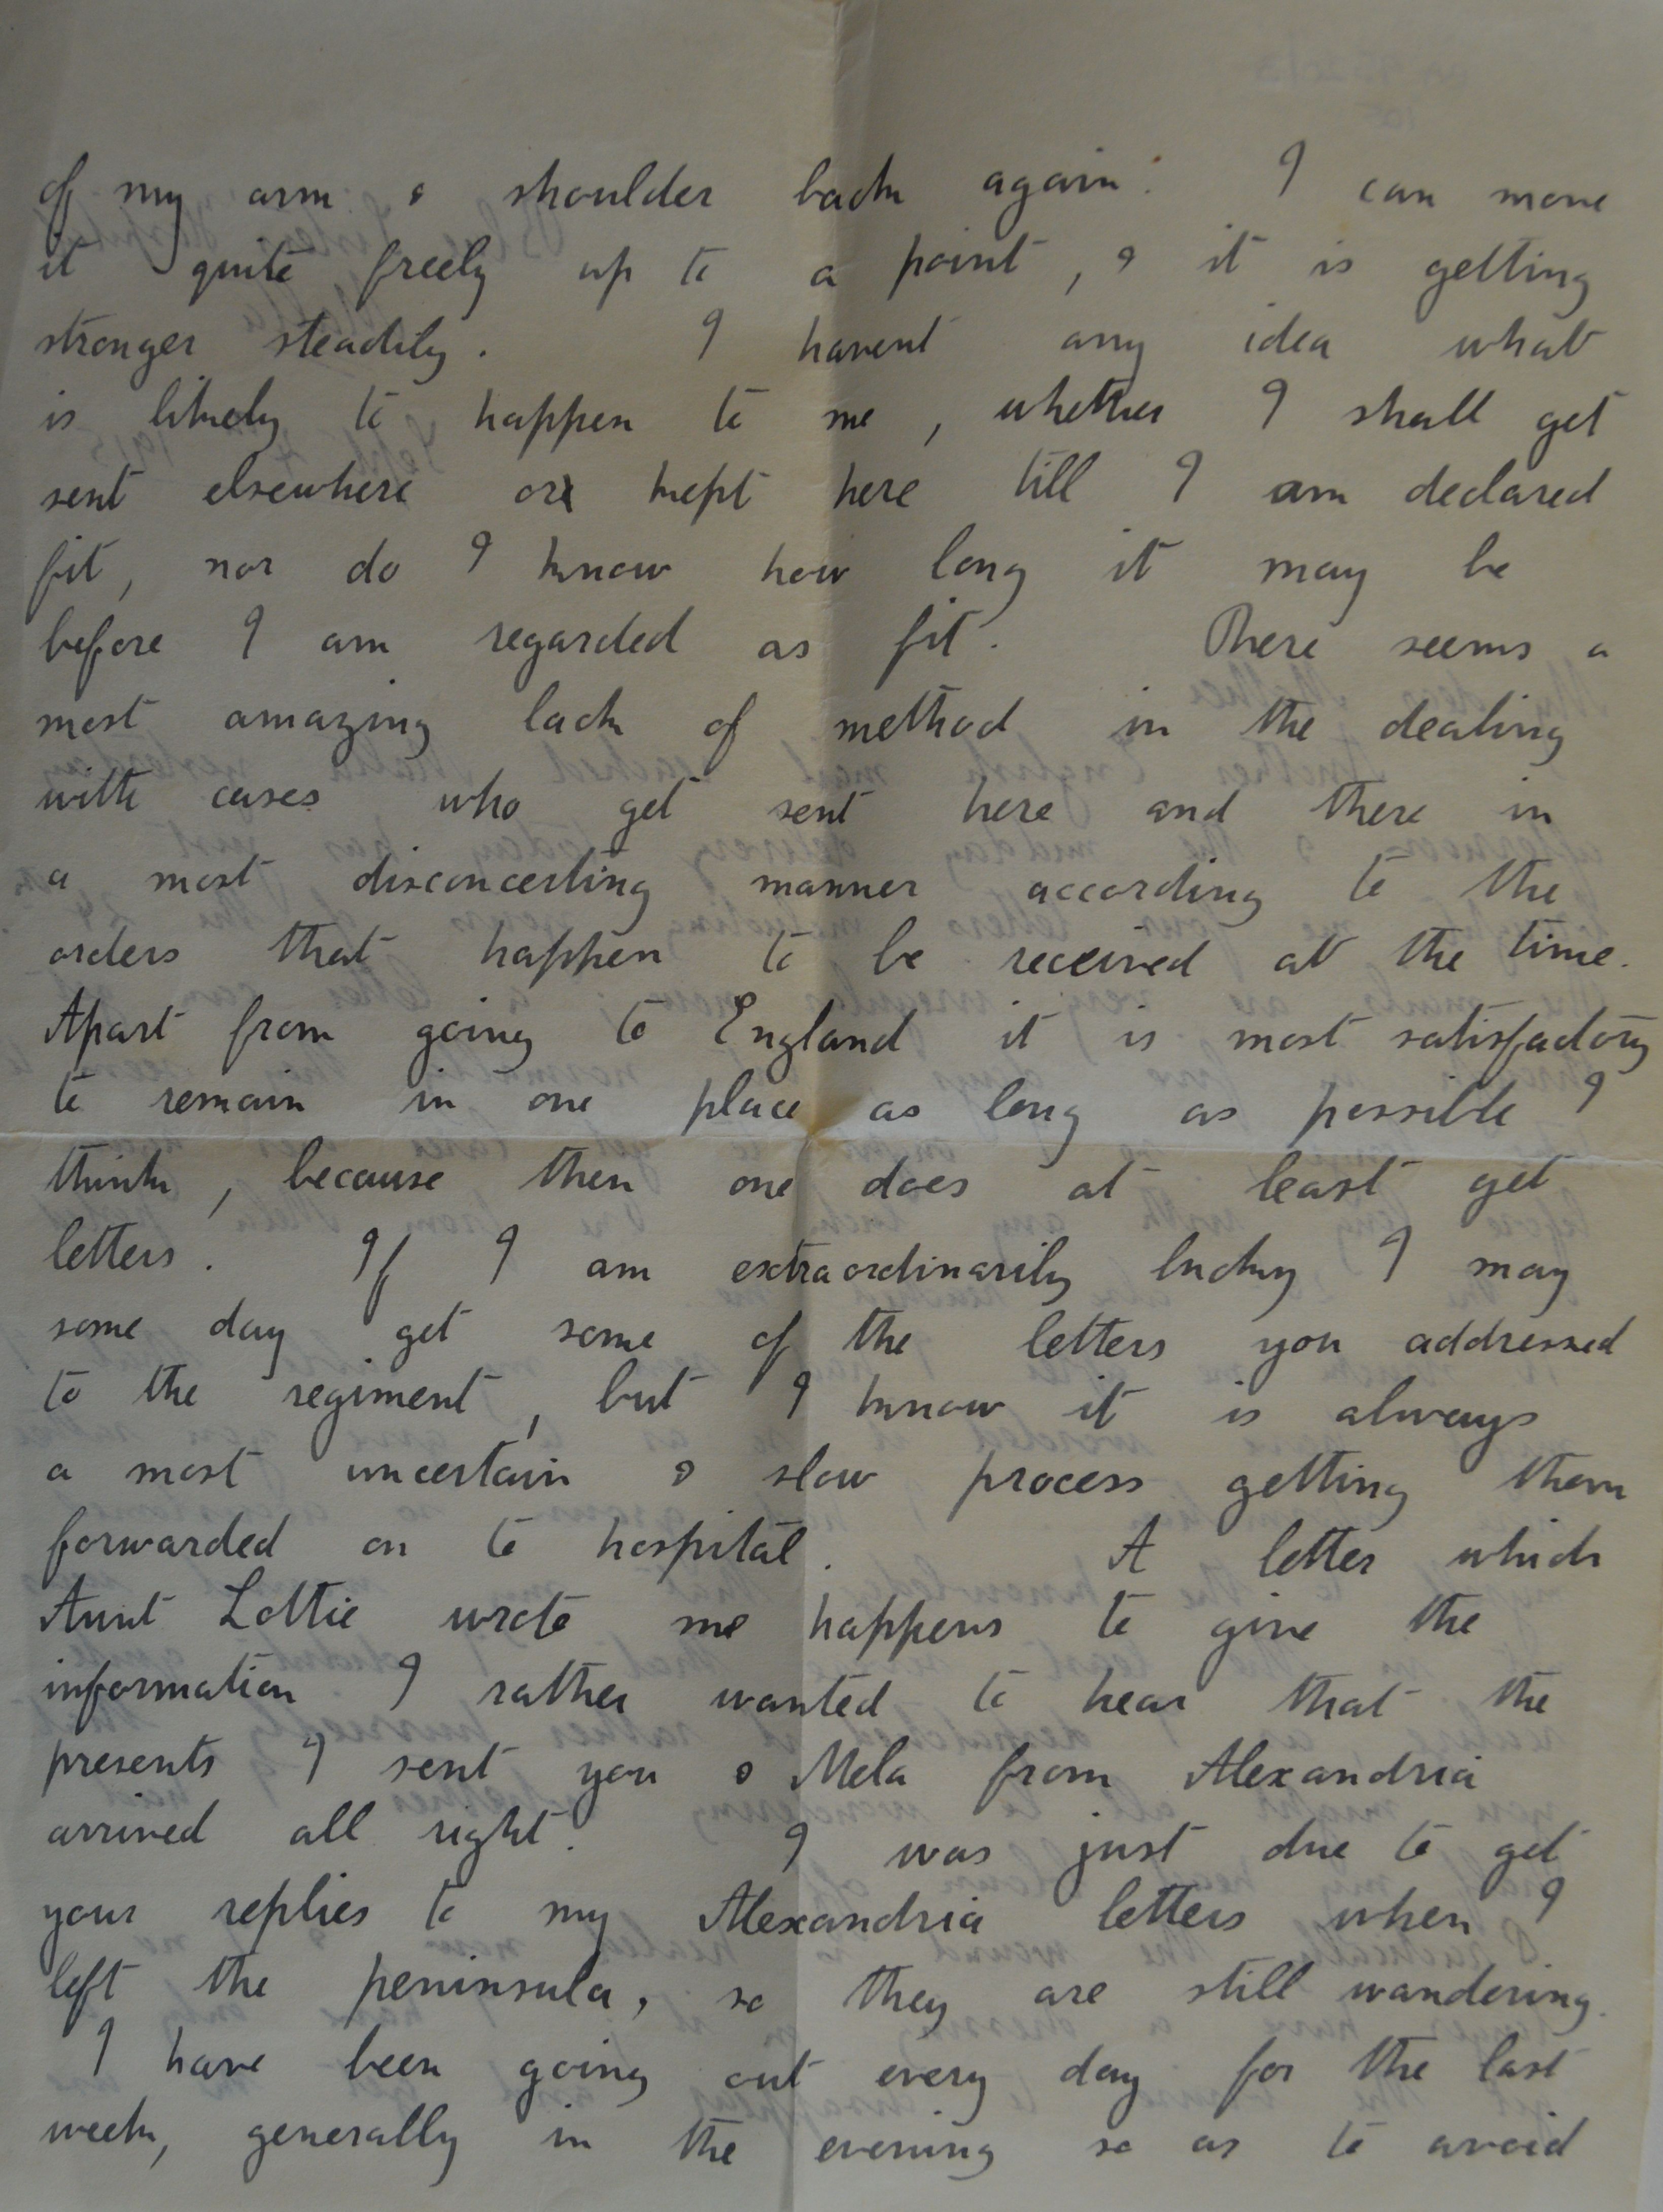 of my arm & shoulder back again. I can move
it quite freely up to a point, & it is getting
stronger steadily. I havent any idea what
is likely to happen to me, whether I shall get
sent elsewhere or kept here till I am declared
fit, nor do I know how long it may be
before I am regarded as fit. There seems a
most amazing lack of method in the dealing
with cases who get sent here and there in
a most disconcerting manner according to the
orders that happen to be received at the time.
Apart from going to England it is most satisfactory
to remain in one place as long as possible I
think, because then one does at least get
letters. If I am extraordinarily lucky I may
some day get some of the letters you addressed
to the regiment, but I know it is always
a most uncertain & slow process getting them
forwarded on to hospital. A letter which
Aunt Lottie wrote me happens to give the
information I rather wanted to hear that the
presents I sent you & Mela from Alexandria
arrived all right. I was just due to get
your replies to my Alexandria letters when I
left the peninsula, so they are still wandering.
I have been going out every day for the last
week, generally in the evening so as to avoid